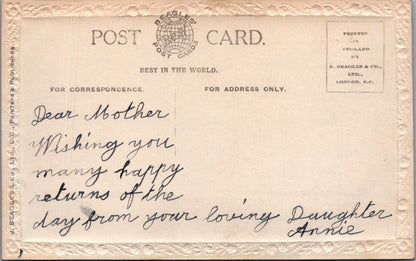 BEAGLES'
POST CARD.
BEST
POST CARDS
PRINTED
IN
ENGLAND.
BY
J. BEAGLES & CO.,
LTD.,
LONDON, E.C.
BEST IN THE WORLD.
FOR CORRESPONDENCE.
FOR ADDRESS ONLY.
Dear Mother
Wishing you
many happy
returns of the
day from your loving Daughter
Annie
J. BEAGLES & CO., LTD., E.C.